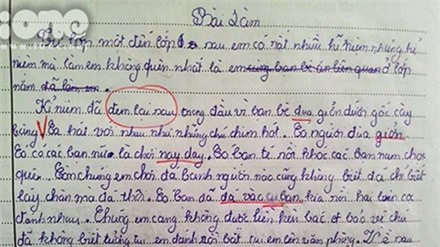 Bài Làm
Từ lớp một đến lớp 6 sau em có rất nhiều kỉ niệm nhưng kỉ
niệm mà làm em không quên nhất là em cùng bạn bè ăn liên quan ở lớp
năm đã làm em.
Kỉ niệm đó đem lại sau trong đầu về bạn bè dua giỡn dưới gốc cây
bàng. Có hát với nhau như những chú chim hót. Có người đùa giỡn
có cả các bạn nữ là chơi nay dây. Có bạn té rồi khóc các bạn nam chơi
quê. Còn chúng em chơi đá banh người nào cũng không biết đá chỉ biết
lấy chân mà đá thôi. Có bạn đã đá vào cu bạn kia rồi hai bên cợ
đánh nhau. Chúng em càng không được liền kêu bác ở bảo vệ chú
đã không biết tưởng tụi em đánh với bắt tụi em lên văn phòng. Kể sau